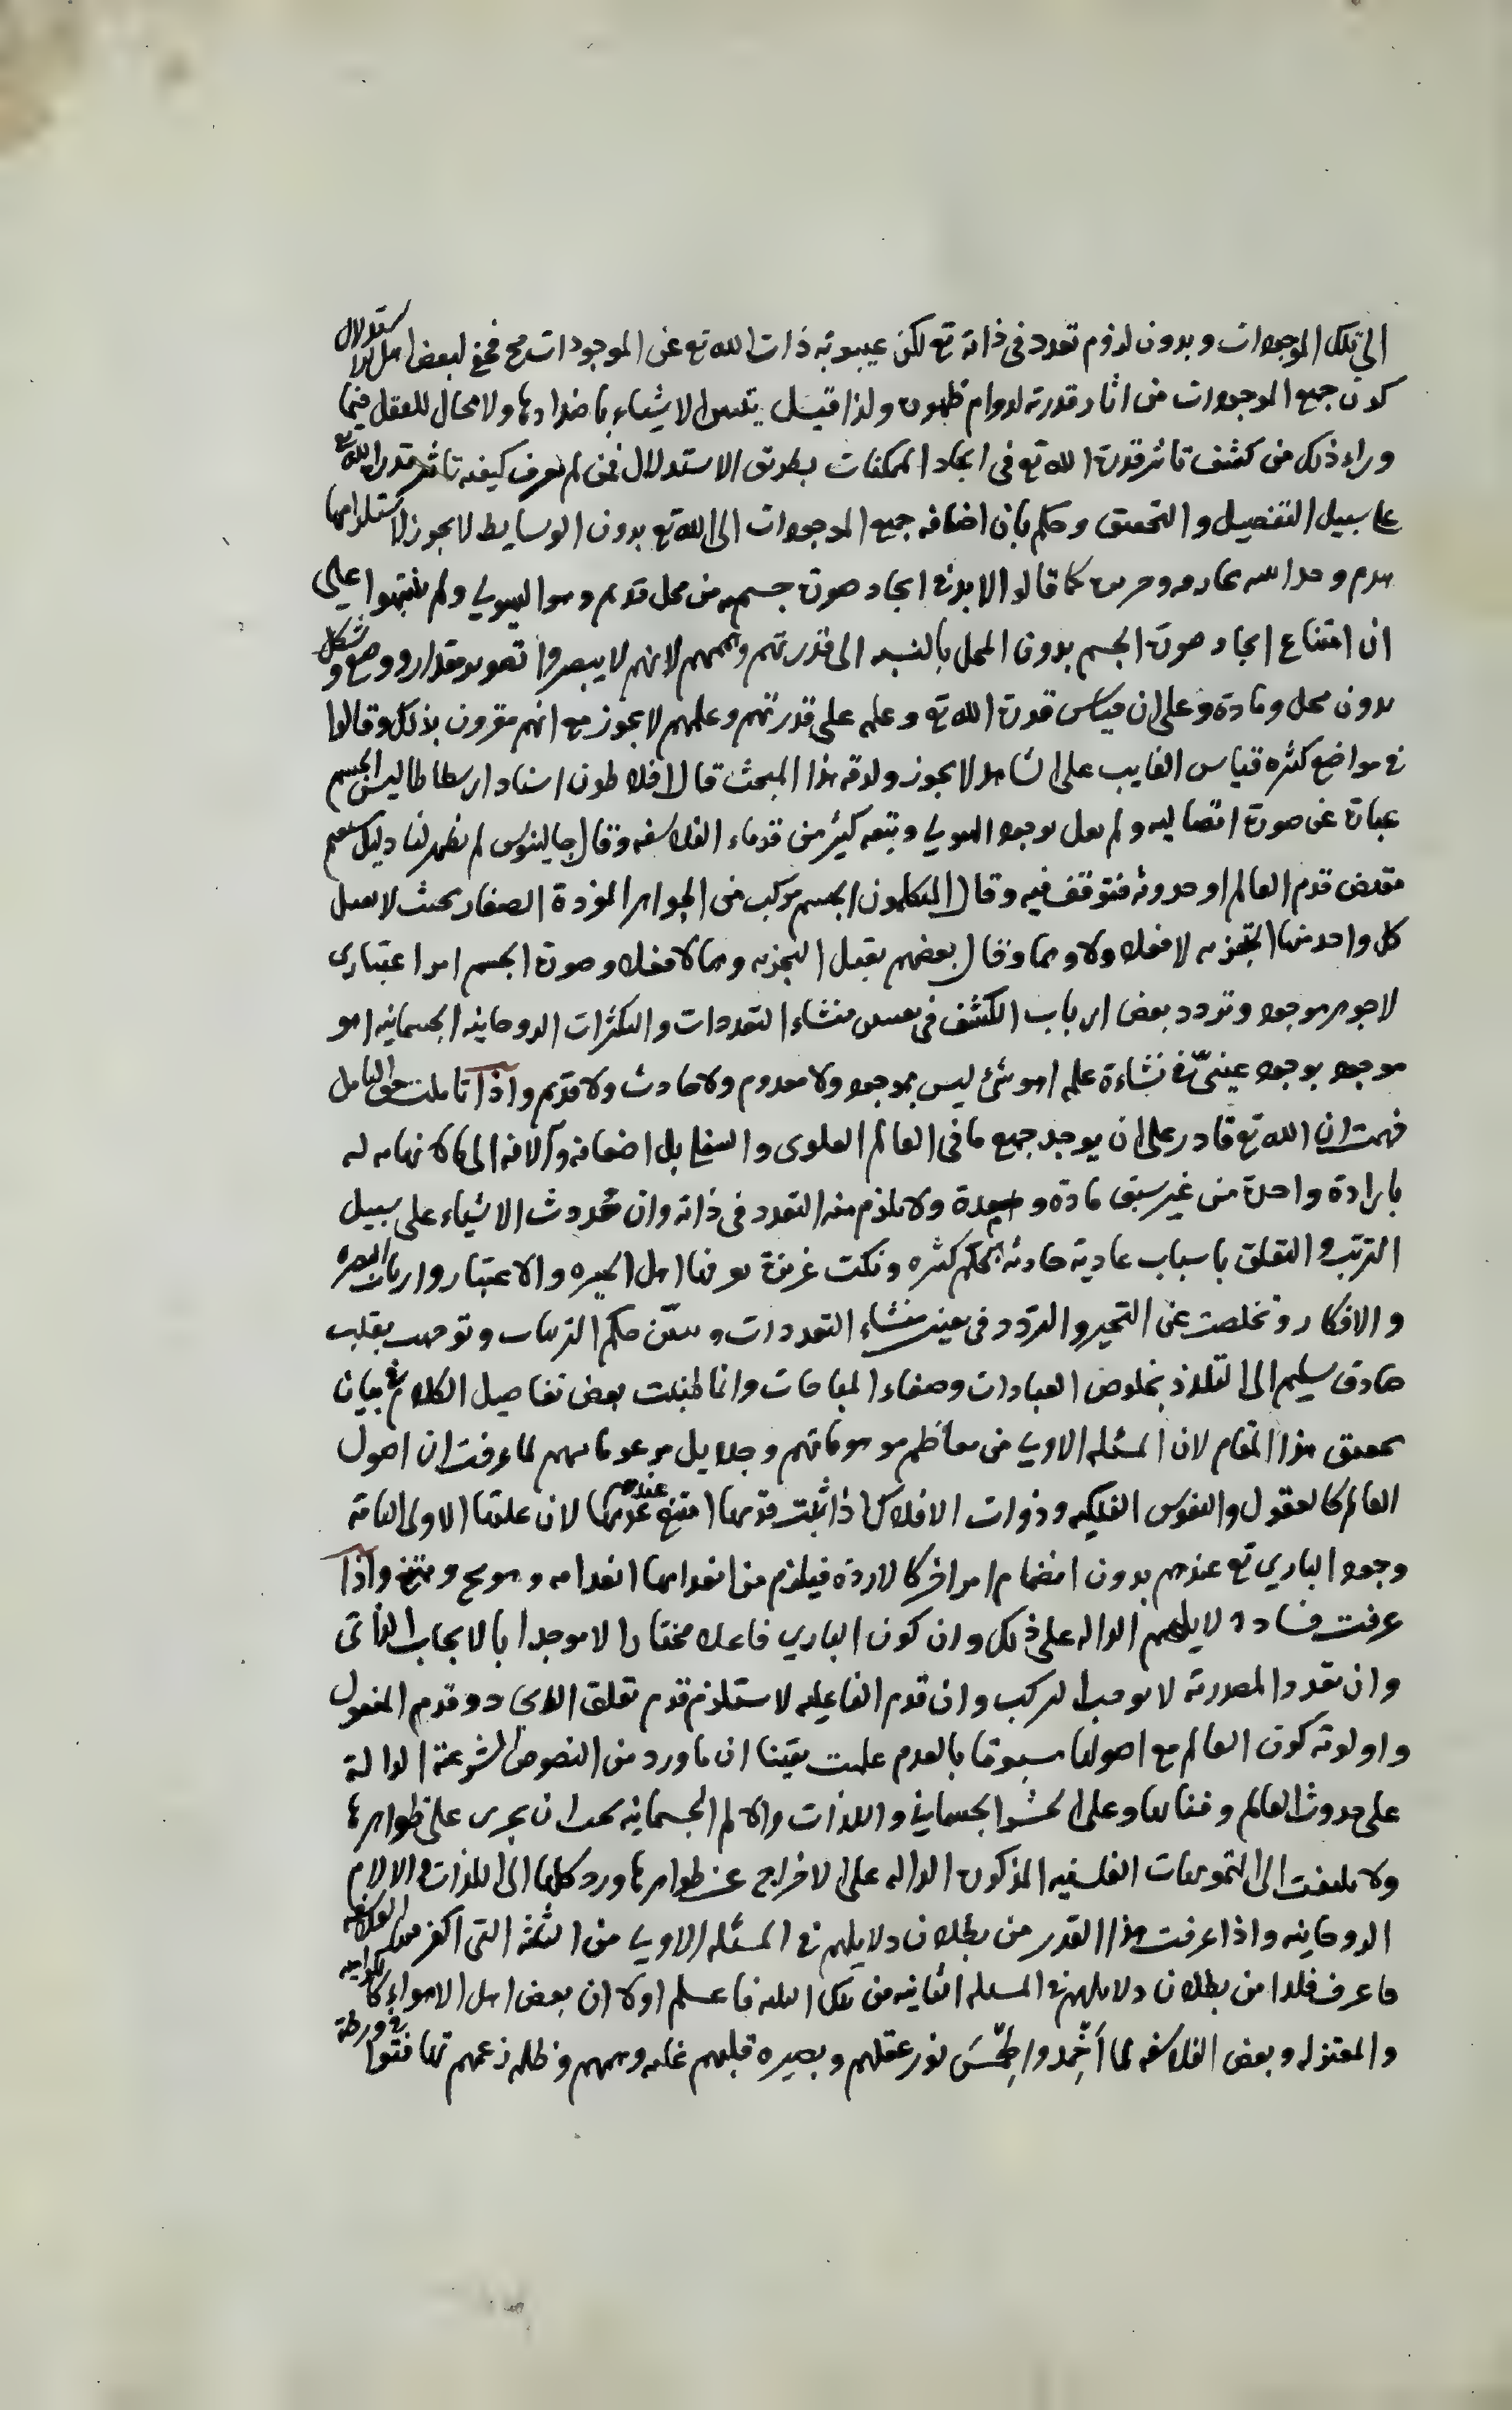 الى تلك الموجودات وبدون لزوم تعدد في ذاته تع لكن غيبوبة ذات الله تع عن الموجودات مح فخفي لبعض اهل الاستدلال
كون جميع الموجودات من اثار قدرته لدوام ظهوره ولذا قيل يتبين الاشياء باضدادها ولا مجال للعقل فيما
وراء ذلك من كشف تاثير قدرة الله تع في ايجاد الممكنات بطريق الاستدلال فمن لم يعرف كيفيه تاثير قدرة الله تع
على سبيل التفصيل والتحقيق وحكم بان اضافه جميع الموجودات الى الله تع بدون الوسايط لا يجوز لاستلزامها
كما قالوا لابد في ايجاد صورة جسميه من محل قديم وهو الهيولي ولم ينتبهوا على
ان امتناع ايجاد صورة الجسم بدون المحل بالنسبه الى قدرتهم وفهمهم لانهم لا يبصروا تصوير مقدار ووضع وشكل
بدون محل ومادة وعلى ان قياس قدرة الله تع وعلمه على قدرتهم وعلمهم لا يجوز مع انهم مقرون بذلك وقالوا
في مواضع كثيره قياس الغايب على الشاهد لا يجوز ولدقه هذا المبحث قال افلاطون استاد ارسطاطاليس الجسم
عبارة عن صورة اتصاليه ولم يقل بوجود الهيولي وتبعه كثير من قدماء الفلاسفه وقال جالينوس لم يظهر لنا دليل
مقتضى قدم العالم او حدوثه فنتوقف فيه وقال المتكلمون الجسم مركب من الجواهر المفردة الصغار بحيث لا يقبل
كل واحد منها التجزيه لا فعلا ولا وهما وقال بعضهم يقبل التجزيه وهما لا فعلا وصورة الجسم امر اعتباري
لا جوهر موجود وتردد بعض ارباب الكشف في تعيين منشاء التعددات والتكثرات الروحانيه الجسمانيه اهو
موجود بوجود عيني في نشاءة علمه اهو شئ ليس بموجود ولا معدوم ولا حادث ولا قديم واذا تاملت حق التامل
فهمت ان الله تع قادر على ان يوجد جميع ما في العالم العلوى والسفلي بل اضعافه وآلافه الى ما لا نهايه له
بارادة واحدة من غير سبق مادة ومدة ولا يلزم منه التعدد في ذاته وان حدوث الاشياء على سبيل
الترتب والتعلق باسباب عادية حادثه لحكم كثيره ونكت غريزة يعرفها اهل الخبره والاعتبار وارباب البصيره
والافكار وتخلصت عن التحير والتردد في تعيين منشاء التعددات وتبين حكم الترتبات وتوجهت بقلب
صادق سليم الى التلذذ بخلوص العبادات وصفاء المناجات وانما اطنبت بعض تفاصيل الكلام في بيان
تحقيق هذا المقام لان المسئله الاولى من معاظم موهوماتهم وجلايل مزعوماتهم لما عرفت ان اصول
العالم كالعقول والنفوس الفلكيه وذوات الافلاك اذا ثبتت قدمها امتنع عدمها عندهم لان علتها الاولى التامة
وجود الباري تع عندهم بدون انضمام امر اخر كالارادة فيلزم من انعدامها انعدامه وهو مح وممتنع واذا
عرفت فساد دلايلهم الداله على ذلك وان كون الباري فاعلا مختارا لا موجدا بالايجاب الذاتى
وان تعدد المصدرية لا يوجب التركب وان قدم الفاعليه لا يستلزم قدم تعلق الايجاد وقدم المفعول
واولوية كون العالم مع اصولها مسبوقا بالعدم علمت يقينا ان ما ورد من النصوص الشرعية الدالة
على حدوث العالم وفنائها وعلى الحشر الجسماني واللذات والالم الجسمانيه يجب ان يجرى على ظواهرها
ولا يلتفت الى التمويهات الفلسفيه المذكورة الداله على الاخراج عن ظواهرها ورد كلها الى اللذات والالام
الروحانيه واذا عرفت هذا القدر من بطلان دلايلهم في المسئله الاولى من الثلثة التى اكفر بها الفلاسفه
فاعرف قدرا من بطلان دلايلهم في المسئله الثانيه من تلك الثلثه فاعلم اولا ان بعض اهل الاهواء كالكراميه
والمعتزله وبعض الفلاسفه لما أُخمد وطُمس نور عقلهم وبصيره قلبهم غلبه وهمهم وظلمه زعمهم تهافتوا في ورطة